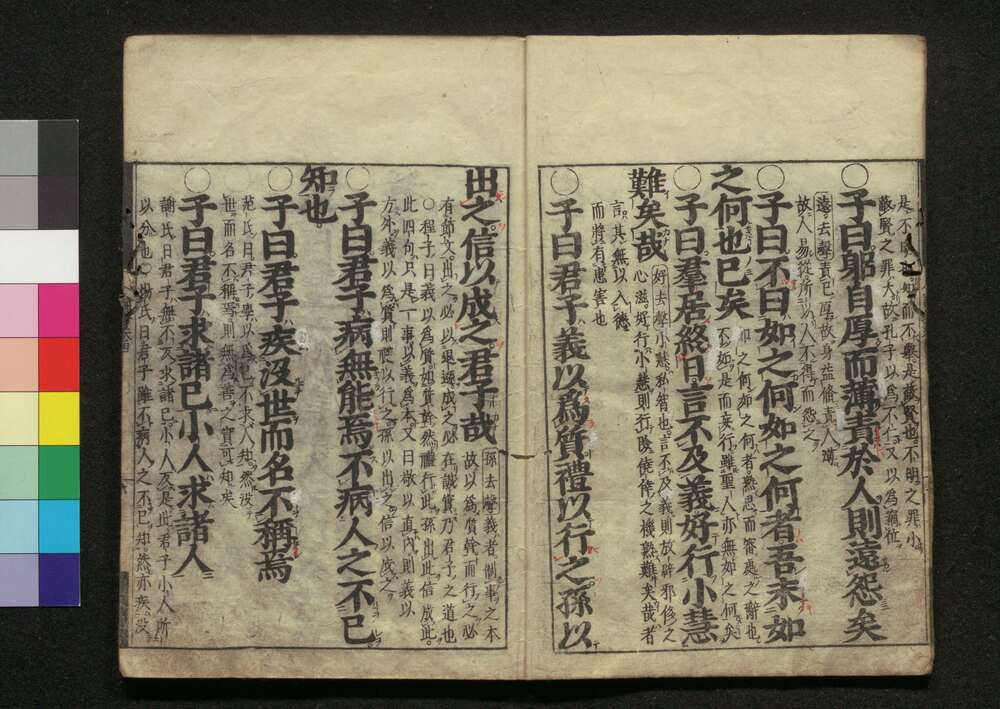 是不明也知而不舉是蔽賢也不明之罪小
蔽賢之罪大故孔子以爲不仁又以爲竊位
○子曰躬自厚而薄責於人則遠怨矣
遠去聲責己厚故身益修責人薄
故人易從所以人不得而怨之
○子曰不曰如之何如之何者吾末如
之何也已矣
如之何如之何者熟思而審處之辭也
不如是而妄行雖聖人亦無如之何矣
○子曰羣居終日言不及義好行小慧
難矣哉
好去聲小慧私智也言不及義則放辟邪侈之
心滋好行小慧則行險僥倖之機熟難矣哉者
言其無以入德
而將有患害也
○子曰君子義以爲質禮以行之孫以
出之信以成之君子哉
孫去聲義者制事之本
故以爲質幹而行之必
有節文出之必以退遜成之必在誠實乃君子之道也
○程子曰義以爲質如質幹然禮行此孫出此信成此
此四句只是一事以義爲本又曰敬以直內則義以
方外義以爲質則禮以行之孫以出之信以成之
○子曰君子病無能焉不病人之不己
知也
○子曰君子疾沒世而名不稱焉
范氏曰君子學以爲己不求人知然沒
世而名不稱焉則無爲善之實可知矣
○子曰君子求諸己小人求諸人
謝氏曰君子無不反求諸己小人反是此君子小人所
以分也○楊氏曰君子雖不病人之不己知然亦疾沒